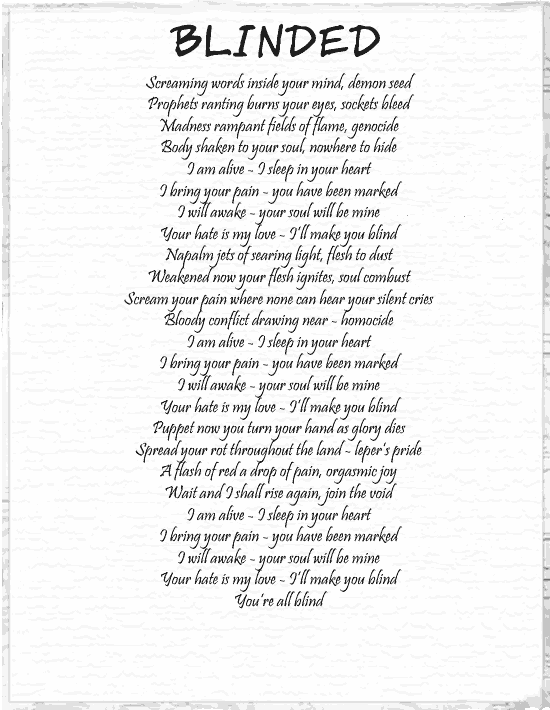 BLINDED
Screaming words inside your mind, demon seed
Prophets ranting burns your eyes, sockets bleed
Madness rampant fields of flame, genocide
Body shaken to your soul, nowhere to hide
I am alive ~ I sleep in your heart
I bring your pain ~ you have been marked
I will awake ~ your soul will be mine
Your hate is my love ~ I'll make you blind
Napalm jets of searing light, flesh to dust
Weakened now your flesh ignites, soul combust
Scream your pain where none can hear your silent cries
Bloody conflict drawing near ~ homocide
I am alive ~ I sleep in your heart
I bring your pain ~ you have been marked
I will awake ~ your soul will be mine
Your hate is my love ~ I'll make you blind
Puppet now you turn your hand as glory dies
Spread your rot throughout the land ~ leper's pride
A flash of red a drop of pain, orgasmic joy
Wait and I shall rise again, join the void
I am alive ~ I sleep in your heart
I bring your pain ~ you have been marked
I will awake ~ your soul will be mine
Your hate is my love ~ I'll make you blind
You're all blind